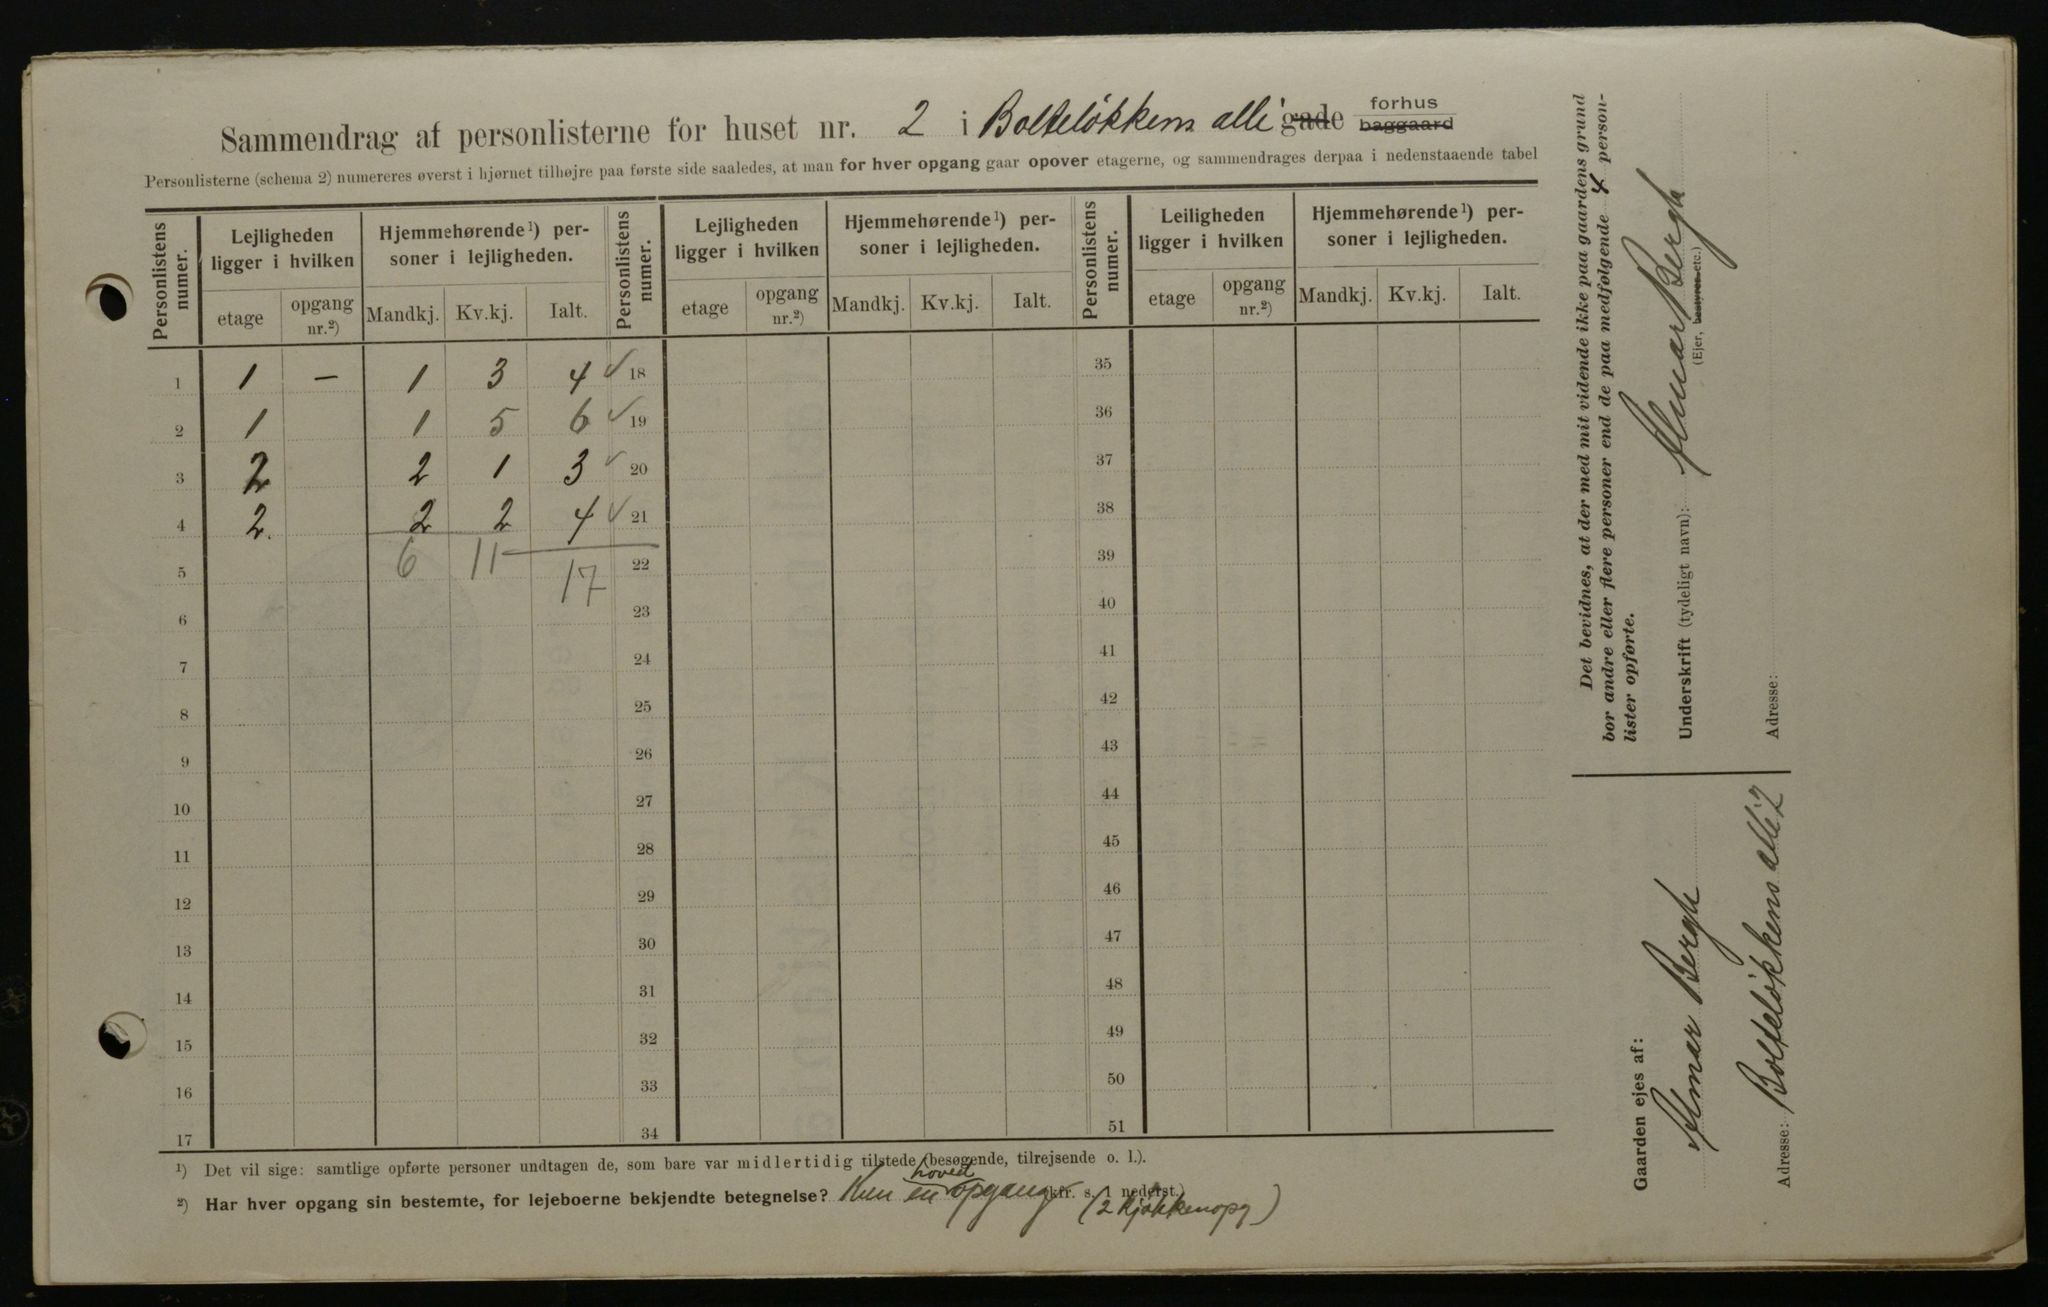 Sammendrag af personlisterne for huset nr. 2 i Bolteløkkens allé gade forhus baggaard
Personlisterne (schema 2) numereres øverst i hjørnet tilhøjre paa første side saaledes, at man for hver opgang gaar opover etagerne, og sammendrages derpaa i nedenstaaende tabel
Personlistens numer. Lejligheden ligger i hvilken Hjemmehørende¹) personer i lejligheden. Personlistens numer. Lejligheden ligger i hvilken Hjemmehørende¹) personer i lejligheden. Personlistens numer. Leiligheden ligger i hvilken Hjemmehørende¹) personer i lejligheden.
etage opgang nr.²) Mandkj. Kv.kj. Ialt. etage opgang nr.²) Mandkj. Kv.kj. Ialt. etage opgang nr.²) Mandkj. Kv.kj. Ialt.
1 1 — 1 3 4 ✓ 18 35
2 1 1 5 6 ✓ 19 36
3 2 2 1 3 ✓ 20 37
4 2. 2 2 4 ✓ 21 38
5 6 11 17 22 39
6 23 40
7 24 41
8 25 42
9 26 43
10 27 44
11 28 45
12 29 46
13 30 47
14 31 48
15 32 49
16 33 50
17 34 51
¹) Det vil sige: samtlige opførte personer undtagen de, som bare var midlertidig tilstede (besøgende, tilrejsende o. l.).
²) Har hver opgang sin bestemte, for lejeboerne bekjendte betegnelse? Kun en hoved opgang (kfr. s. 1 nederst.) (2 kjøkkenopg)
Det bevidnes, at der med mit vidende ikke paa gaardens grund
bor andre eller flere personer end de paa medfølgende 4 person-
lister opførte.
Underskrift (tydeligt navn): Almar Bergh
(Ejer, bestyrer etc.)
Adresse:
Gaarden ejes af:
Almar Bergh
Adresse: Bolteløkkens allé 2